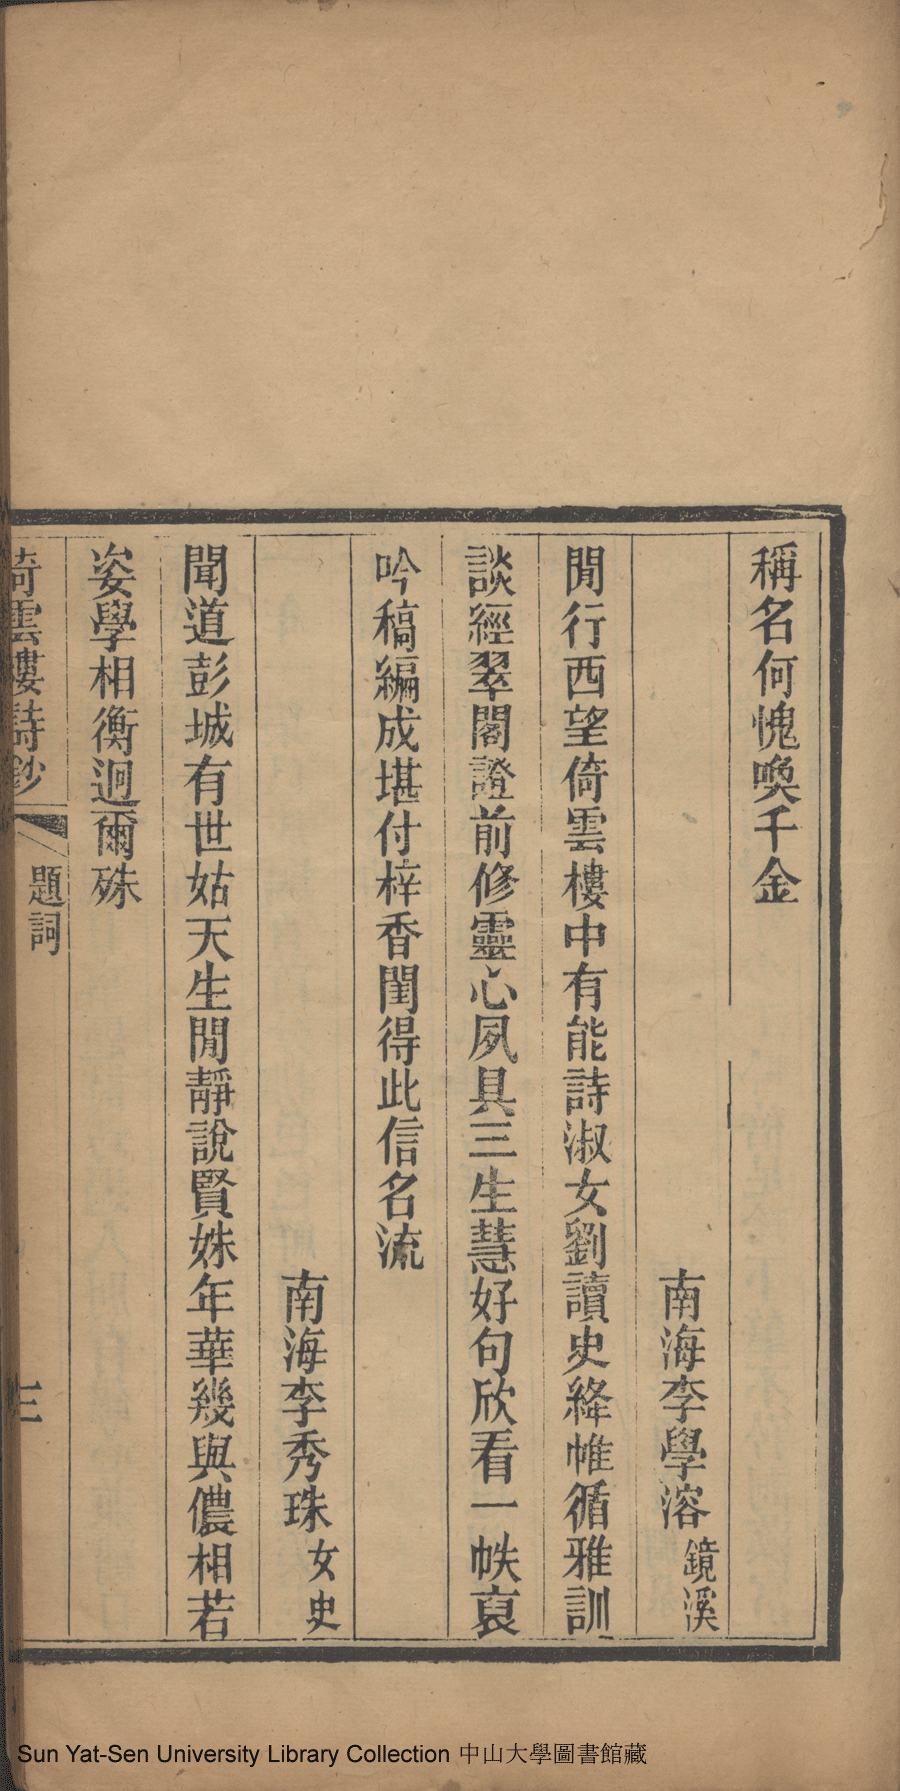 稱名何愧喚千金
南海李學溶鏡溪
閒行西望倚雲樓中有能詩淑女劉讀史絳帷循雅訓
談經翠閣證前修靈心夙具三生慧好句欣看一帙裒
吟稿編成堪付梓香閨得此信名流
南海李秀珠女史
聞道彭城有世姑天生閒靜說賢姝年華幾與儂相若
姿學相衡迥爾殊
倚雲樓詩鈔 題詞 三
Sun Yat-Sen University Library Collection 中山大學圖書館藏